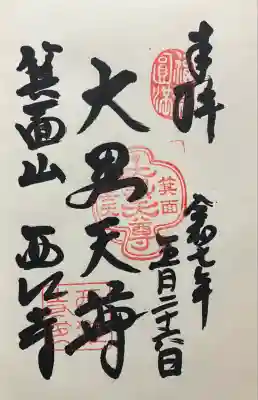 奉拝
圓満
令和七年
五月二十六日
大黒天尊
箕面
箕面山 西江寺